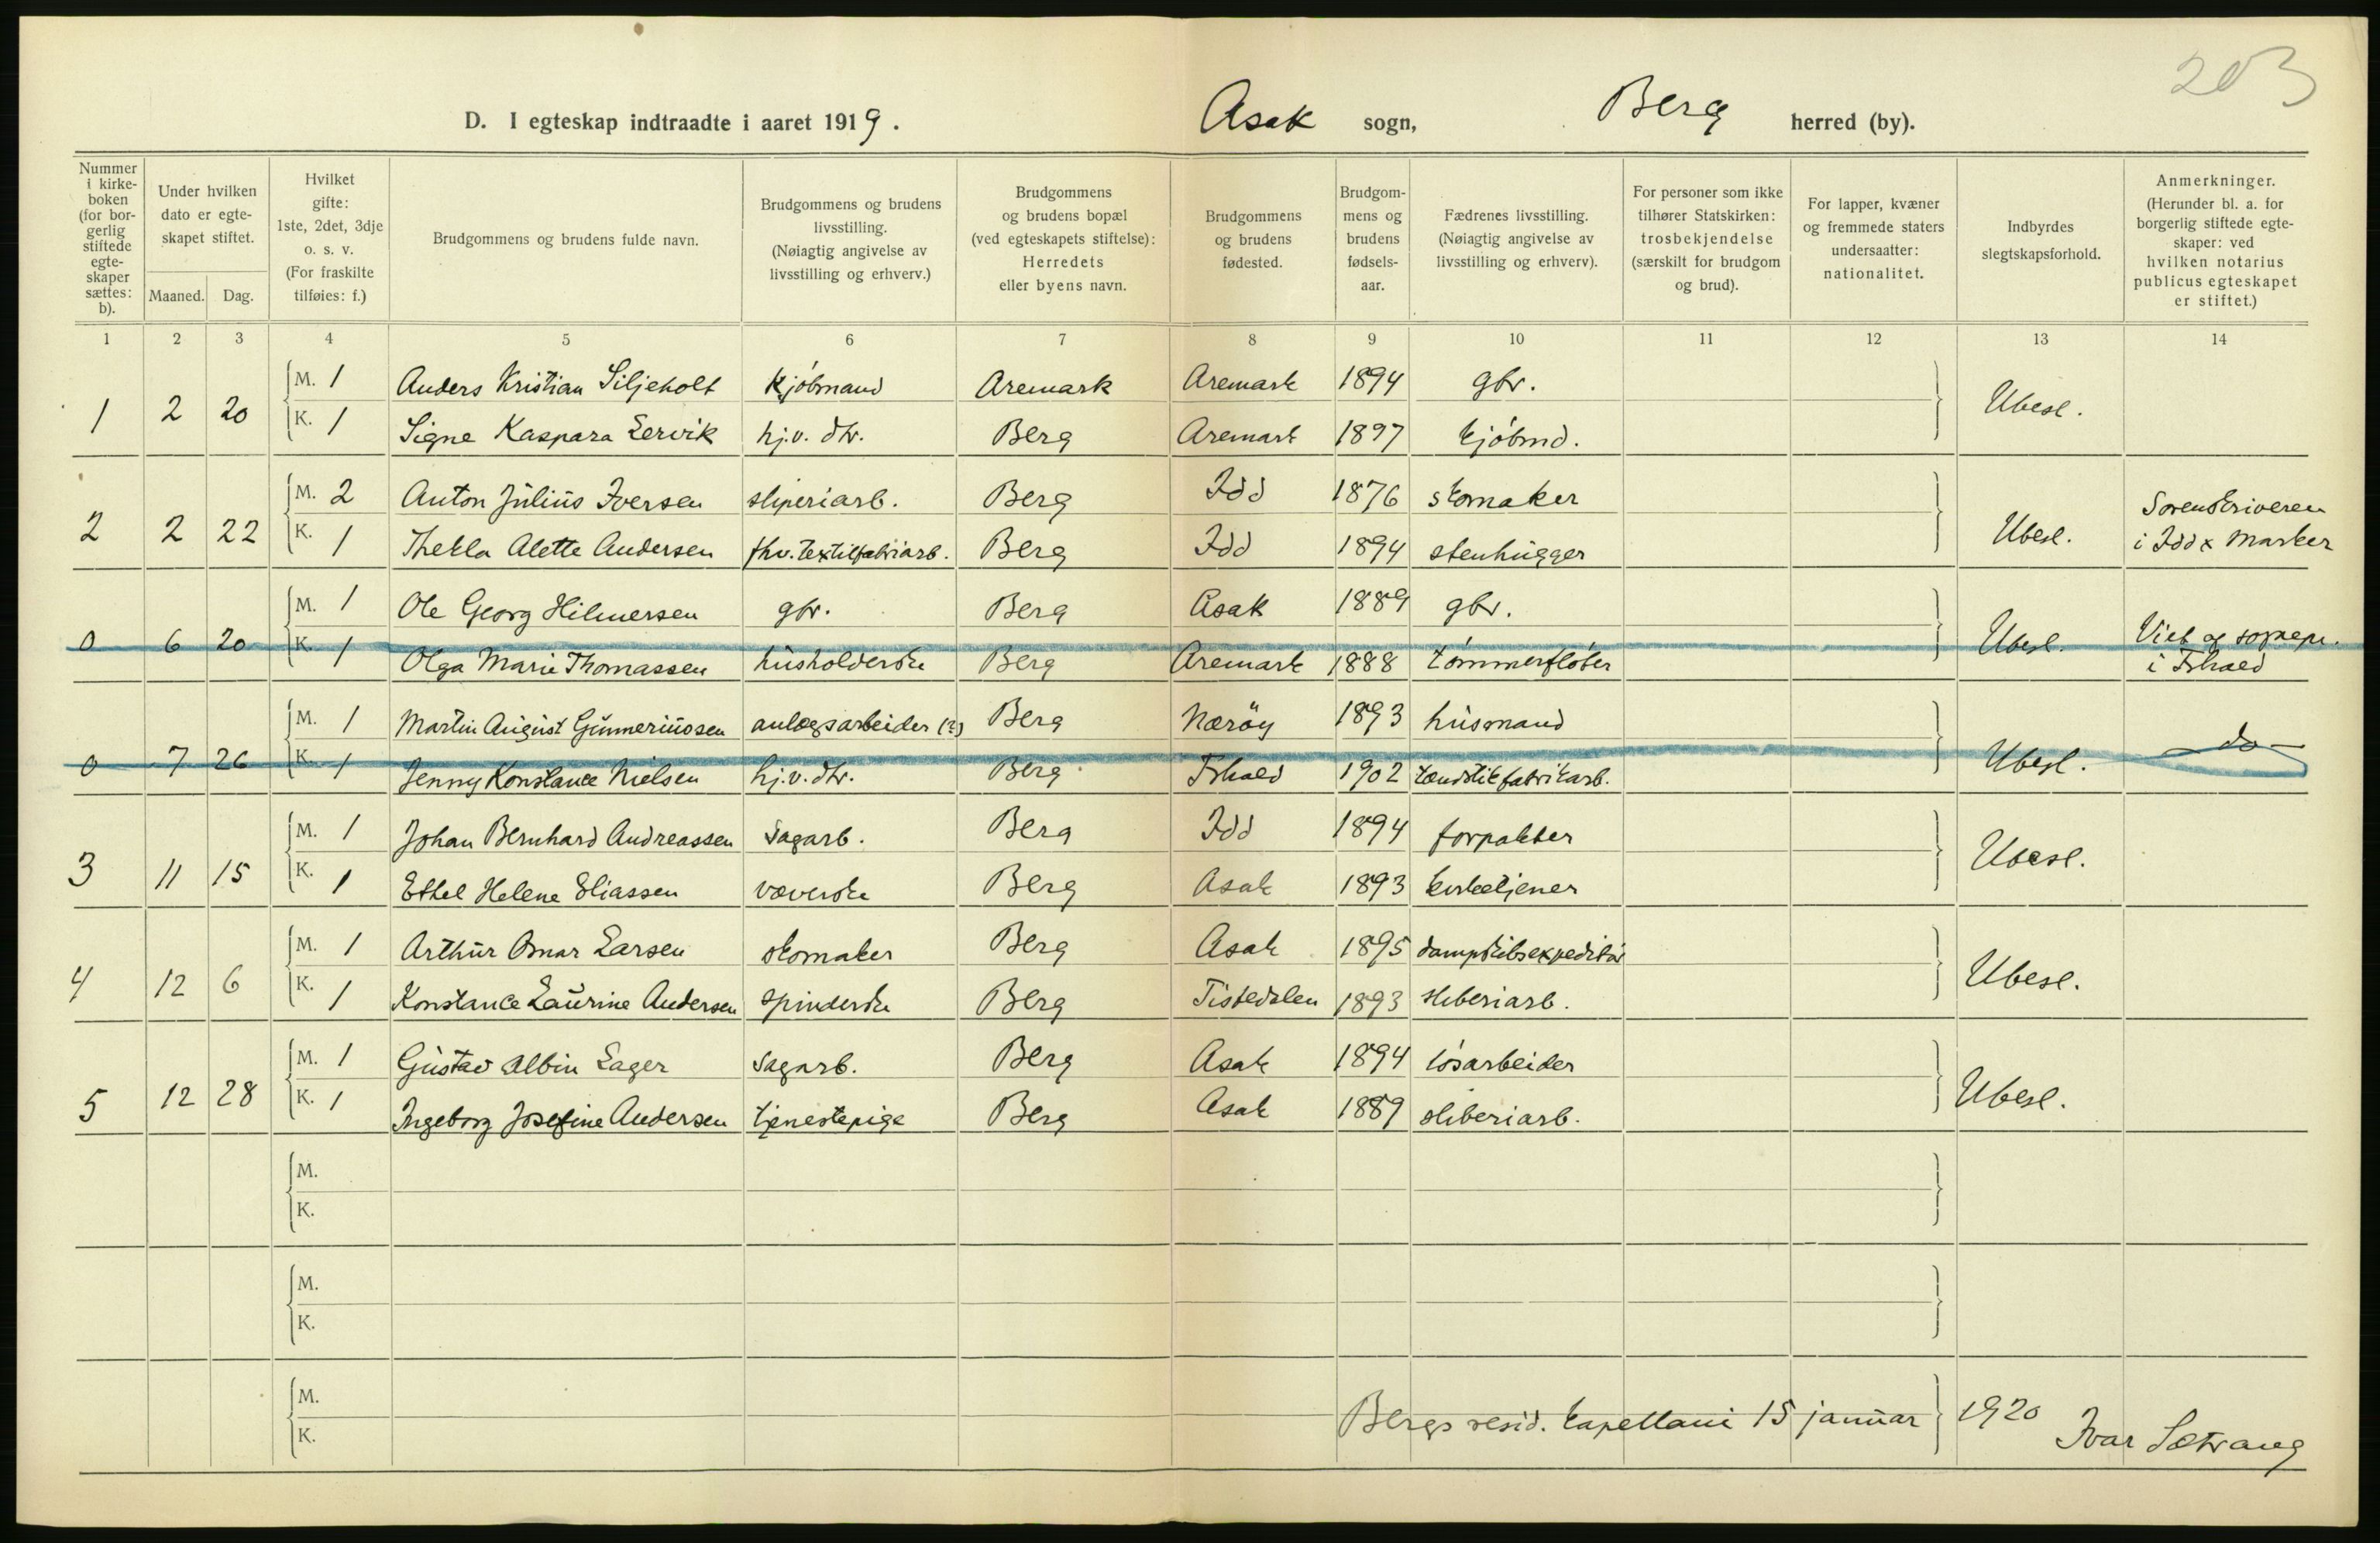 203
D. I egteskap indtraadte i aaret 1919. Asak sogn, Berg herred (by).
Nummer i kirke-boken (for bor-gerlig stiftede egte-skaper sættes: b).
Under hvilken dato er egte-skapet stiftet.
Maaned. Dag.
Hvilket gifte: 1ste, 2det, 3dje o. s. v. (For fraskilte tilføies: f.)
Brudgommens og brudens fulde navn.
Brudgommens og brudens livsstilling. (Nøiagtig angivelse av livsstilling og erhverv.)
Brudgommens og brudens bopæl (ved egteskapets stiftelse): Herredets eller byens navn.
Brudgommens og brudens fødested.
Brudgom-mens og brudens fødsels-aar.
Fædrenes livsstilling. (Nøiagtig angivelse av livsstilling og erhverv).
For personer som ikke tilhører Statskirken: trosbekjendelse (særskilt for brudgom og brud).
For lapper, kvæner og fremmede staters undersaatter: nationalitet.
Indbyrdes slegtskapsforhold.
Anmerkninger. (Herunder bl. a. for borgerlig stiftede egte-skaper: ved hvilken notarius publicus egteskapet er stiftet.)
1 2 3 4 5 6 7 8 9 10 11 12 13 14
M. 1 Anders Kristian Siljeholt kjøbmand Aremark Aremark 1894 gbr.
1 2 20 Ubesl.
K. 1 Signe Kaspara Lervik hj.v. dtr. Berg Aremark 1897 kjøbmd.
M. 2 Anton Julius Iversen sliperiarb. Berg Idd 1876 skomaker
2 2 22 Ubesl. Sorenskriveren i Idd & Marker
K. 1 Thekla Alette Andersen fhv. textilfabriarb. Berg Idd 1894 stenhugger
M. 1 Ole Georg Hilmersen gbr. Berg Asak 1889 gbr.
0 6 20 Ubesl. Viet av sognepr. i Fhald
K. 1 Olga Marie Thomassen husholderske Berg Aremark 1888 tømmerfløter
M. 1 Martin August Gunneriussen anlægsarbeider (?) Berg Nærøy 1893 husmand
0 7 26 Ubesl. - do -
K. 1 Jenny Konstance Nielsen hj.v. dtr. Berg Fhald 1902 tændstikfabrikarb.
M. 1 Johan Bernhard Andreassen Sagarb. Berg Idd 1894 forpakter
3 11 15 Ubesl.
K. 1 Ethel Helene Eliassen væverske Berg Asak 1893 kirketjener
M. 1 Arthur Omar Larsen skomaker Berg Asak 1895 dampskibsexpeditør
4 12 6 Ubesl.
K. 1 Konstance Laurine Andersen spinderske Berg Tistedalen 1893 sliberiarb.
M. 1 Gustav Albin Lager sagarb. Berg Asak 1894 løsarbeider
5 12 28 Ubesl.
K. 1 Ingeborg Josefine Andersen tjenestepige Berg Asak 1889 sliberiarb.
M.
K.
M.
K.
M.
K.
Bergs resid. kapellani 15 januar 1920
Ivar Sætrang